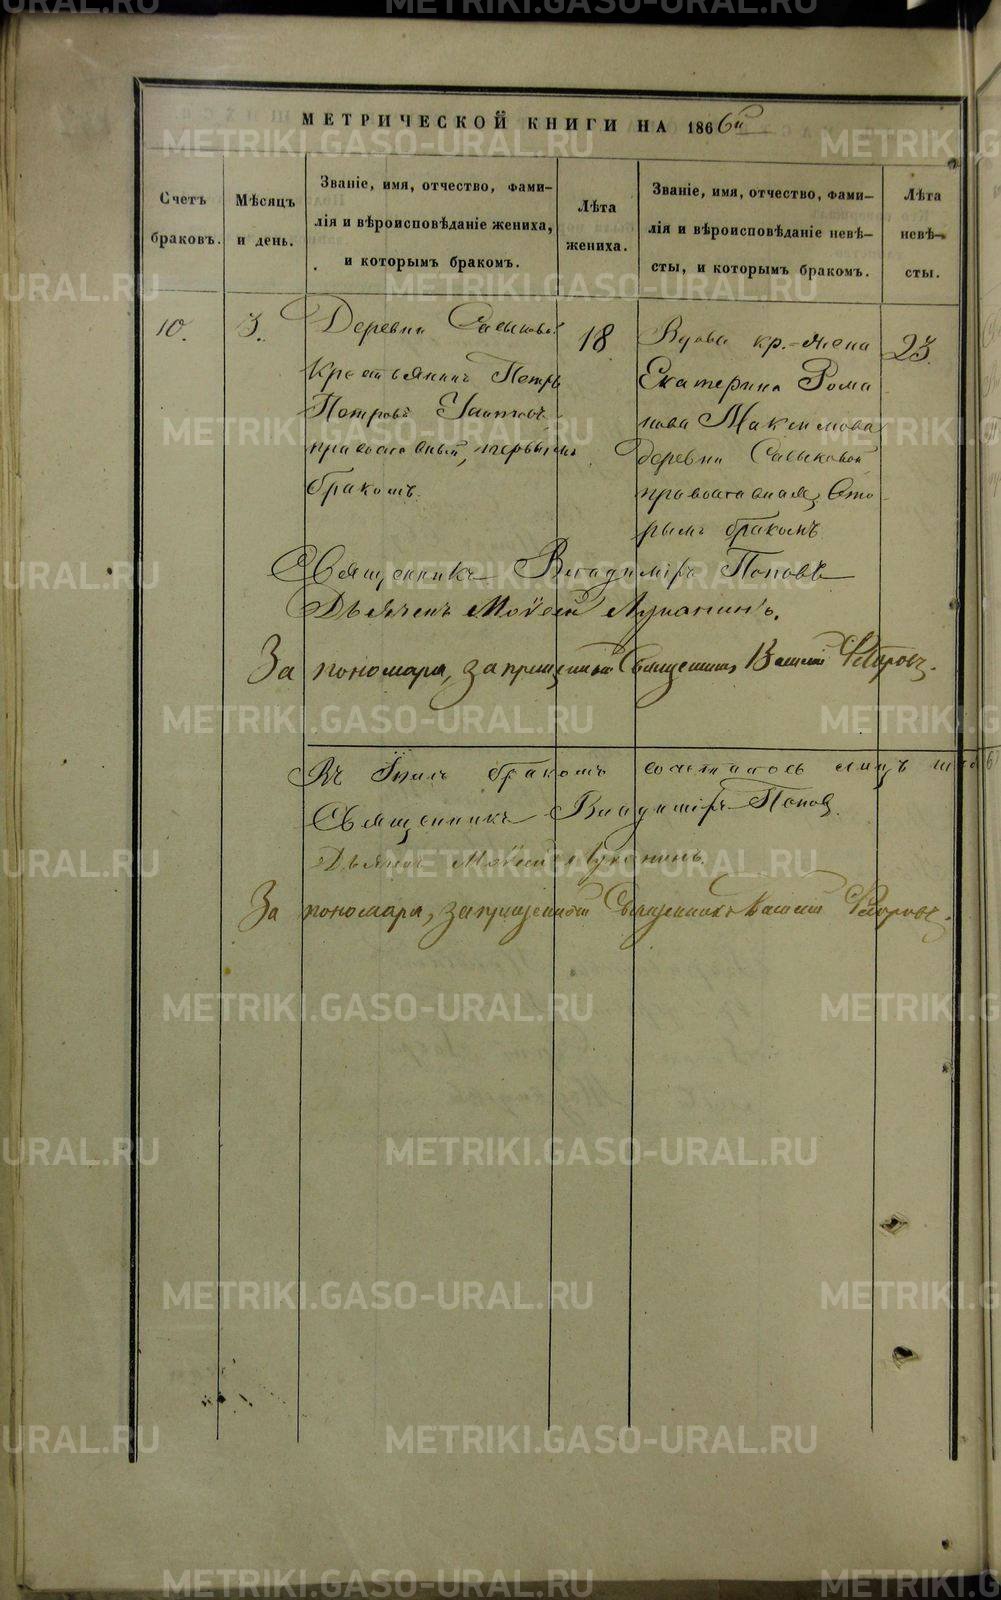 МЕТРИЧЕСКОЙ КНИГИ НА 1866й
Счетъ браковъ.
Мѣсяцъ и день.
Званіе, имя, отчество, фами-
лія и вѣроисповѣданіе жениха,
и которымъ бракомъ.
Лѣта
жениха.
Званіе, имя, отчество, фами-
лія и вѣроисповѣданіе невѣ-
сты, и которымъ бракомъ.
Лѣта
невѣ-
сты.
10.
3.
Деревни
Крестьянинъ Петръ
Петровъ
православный, первымъ
бракомъ.
18
Вдова кр. жена
Екатерина Рома
нова Максимова
деревни Савыковой
православная, Вто
рымъ бракомъ
23.
Священникъ Владиміръ Поповъ
Дьячекъ Мойсей Луканинъ.
За пономаря, запрещенный Священникъ Василій
Въ Іюлѣ бракомъ сочеталось лицъ
Священникъ Владиміръ Поповъ
Дьячекъ Мойсей Луканинъ.
За пономаря, запрещенный Священникъ Василій
METRIKI.GASO-URAL.RU